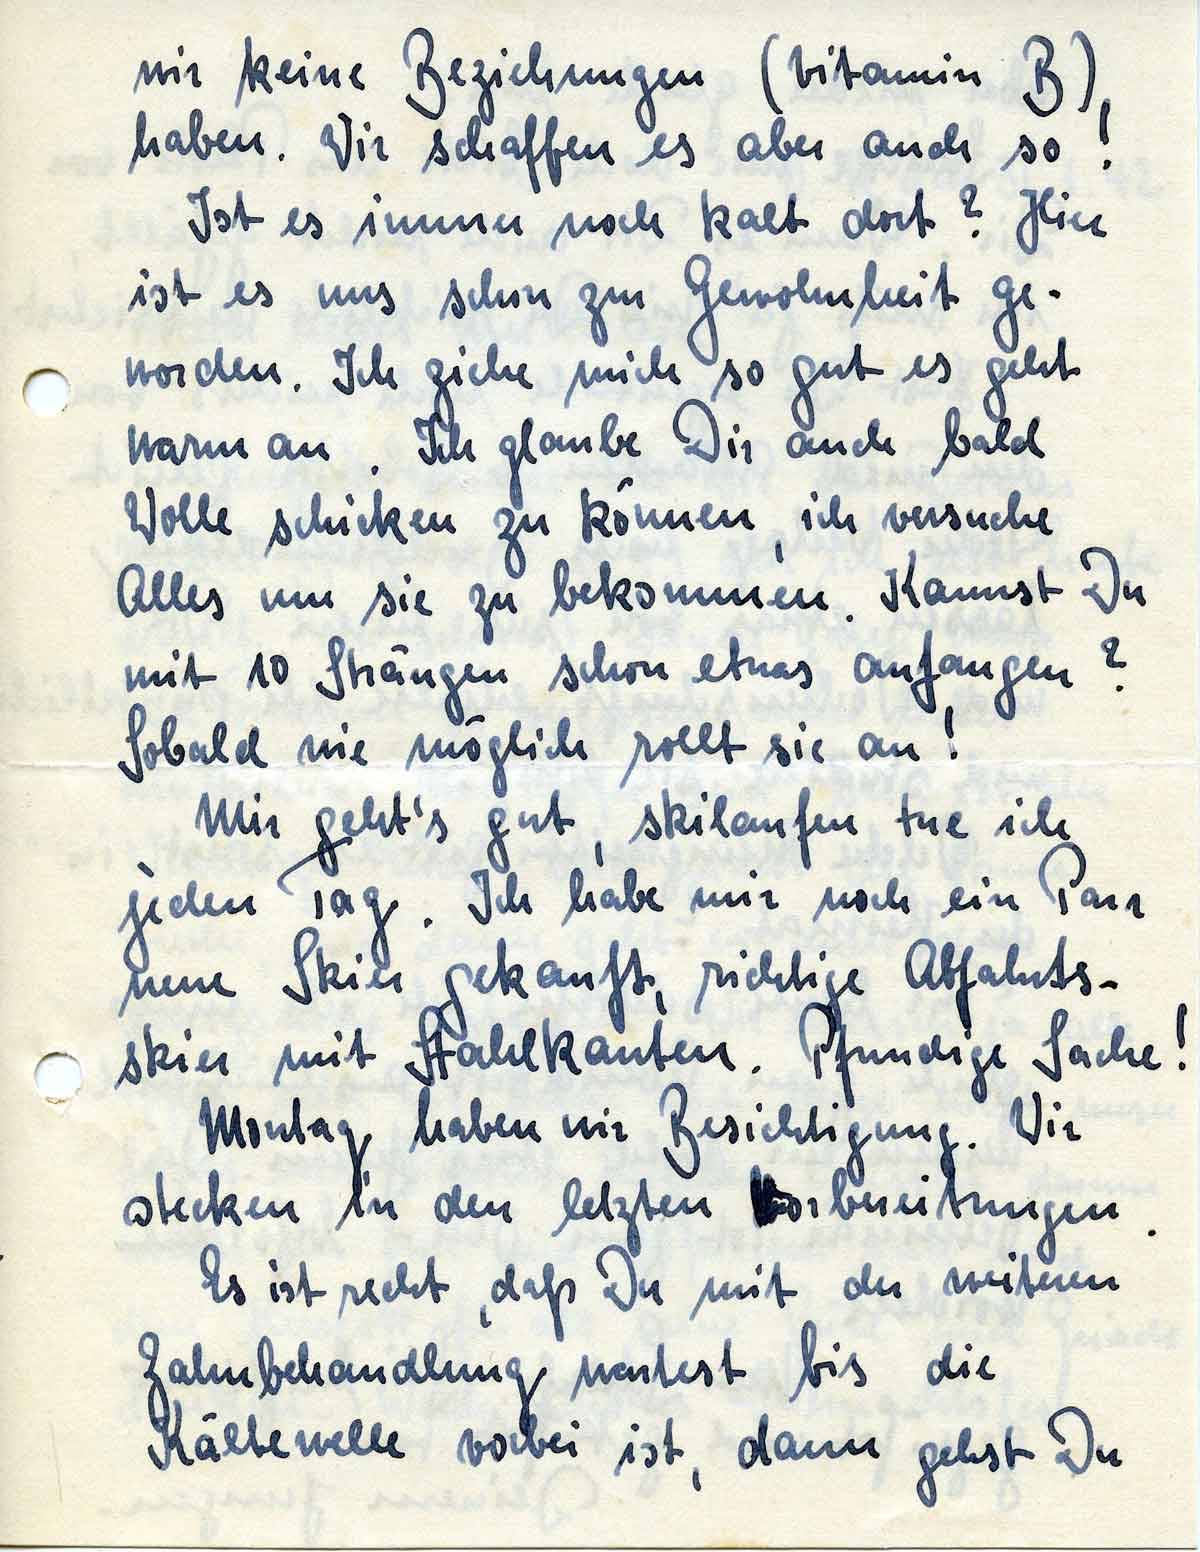 wir keine Beziehungen (Vitamin B),
haben. Wir schaffen es aber auch so!
Ist es immer noch kalt dort? Hier
ist es uns schon zur Gewohnheit ge-
worden. Ich ziehe mich so gut es geht
warm an. Ich glaube Dir auch bald
Wolle schicken zu können, ich versuche
Alles um sie zu bekommen. Kannst Du
mit 10 Strängen schon etwas anfangen?
Sobald wie möglich rollt sie an!
Mir geht's gut, skilaufen tue ich
jeden Tag. Ich habe mir noch ein Paar
neue Skier gekauft, richtige Abfahrts-
skier mit Stahlkanten. Pfundige Sache!
Montag haben wir Besichtigung. Wir
stecken in den letzten Vorbereitungen.
Es ist recht, daß Du mit der weiteren
Zahnbehandlung wartest bis die
Kältewelle vorbei ist, dann gehst Du